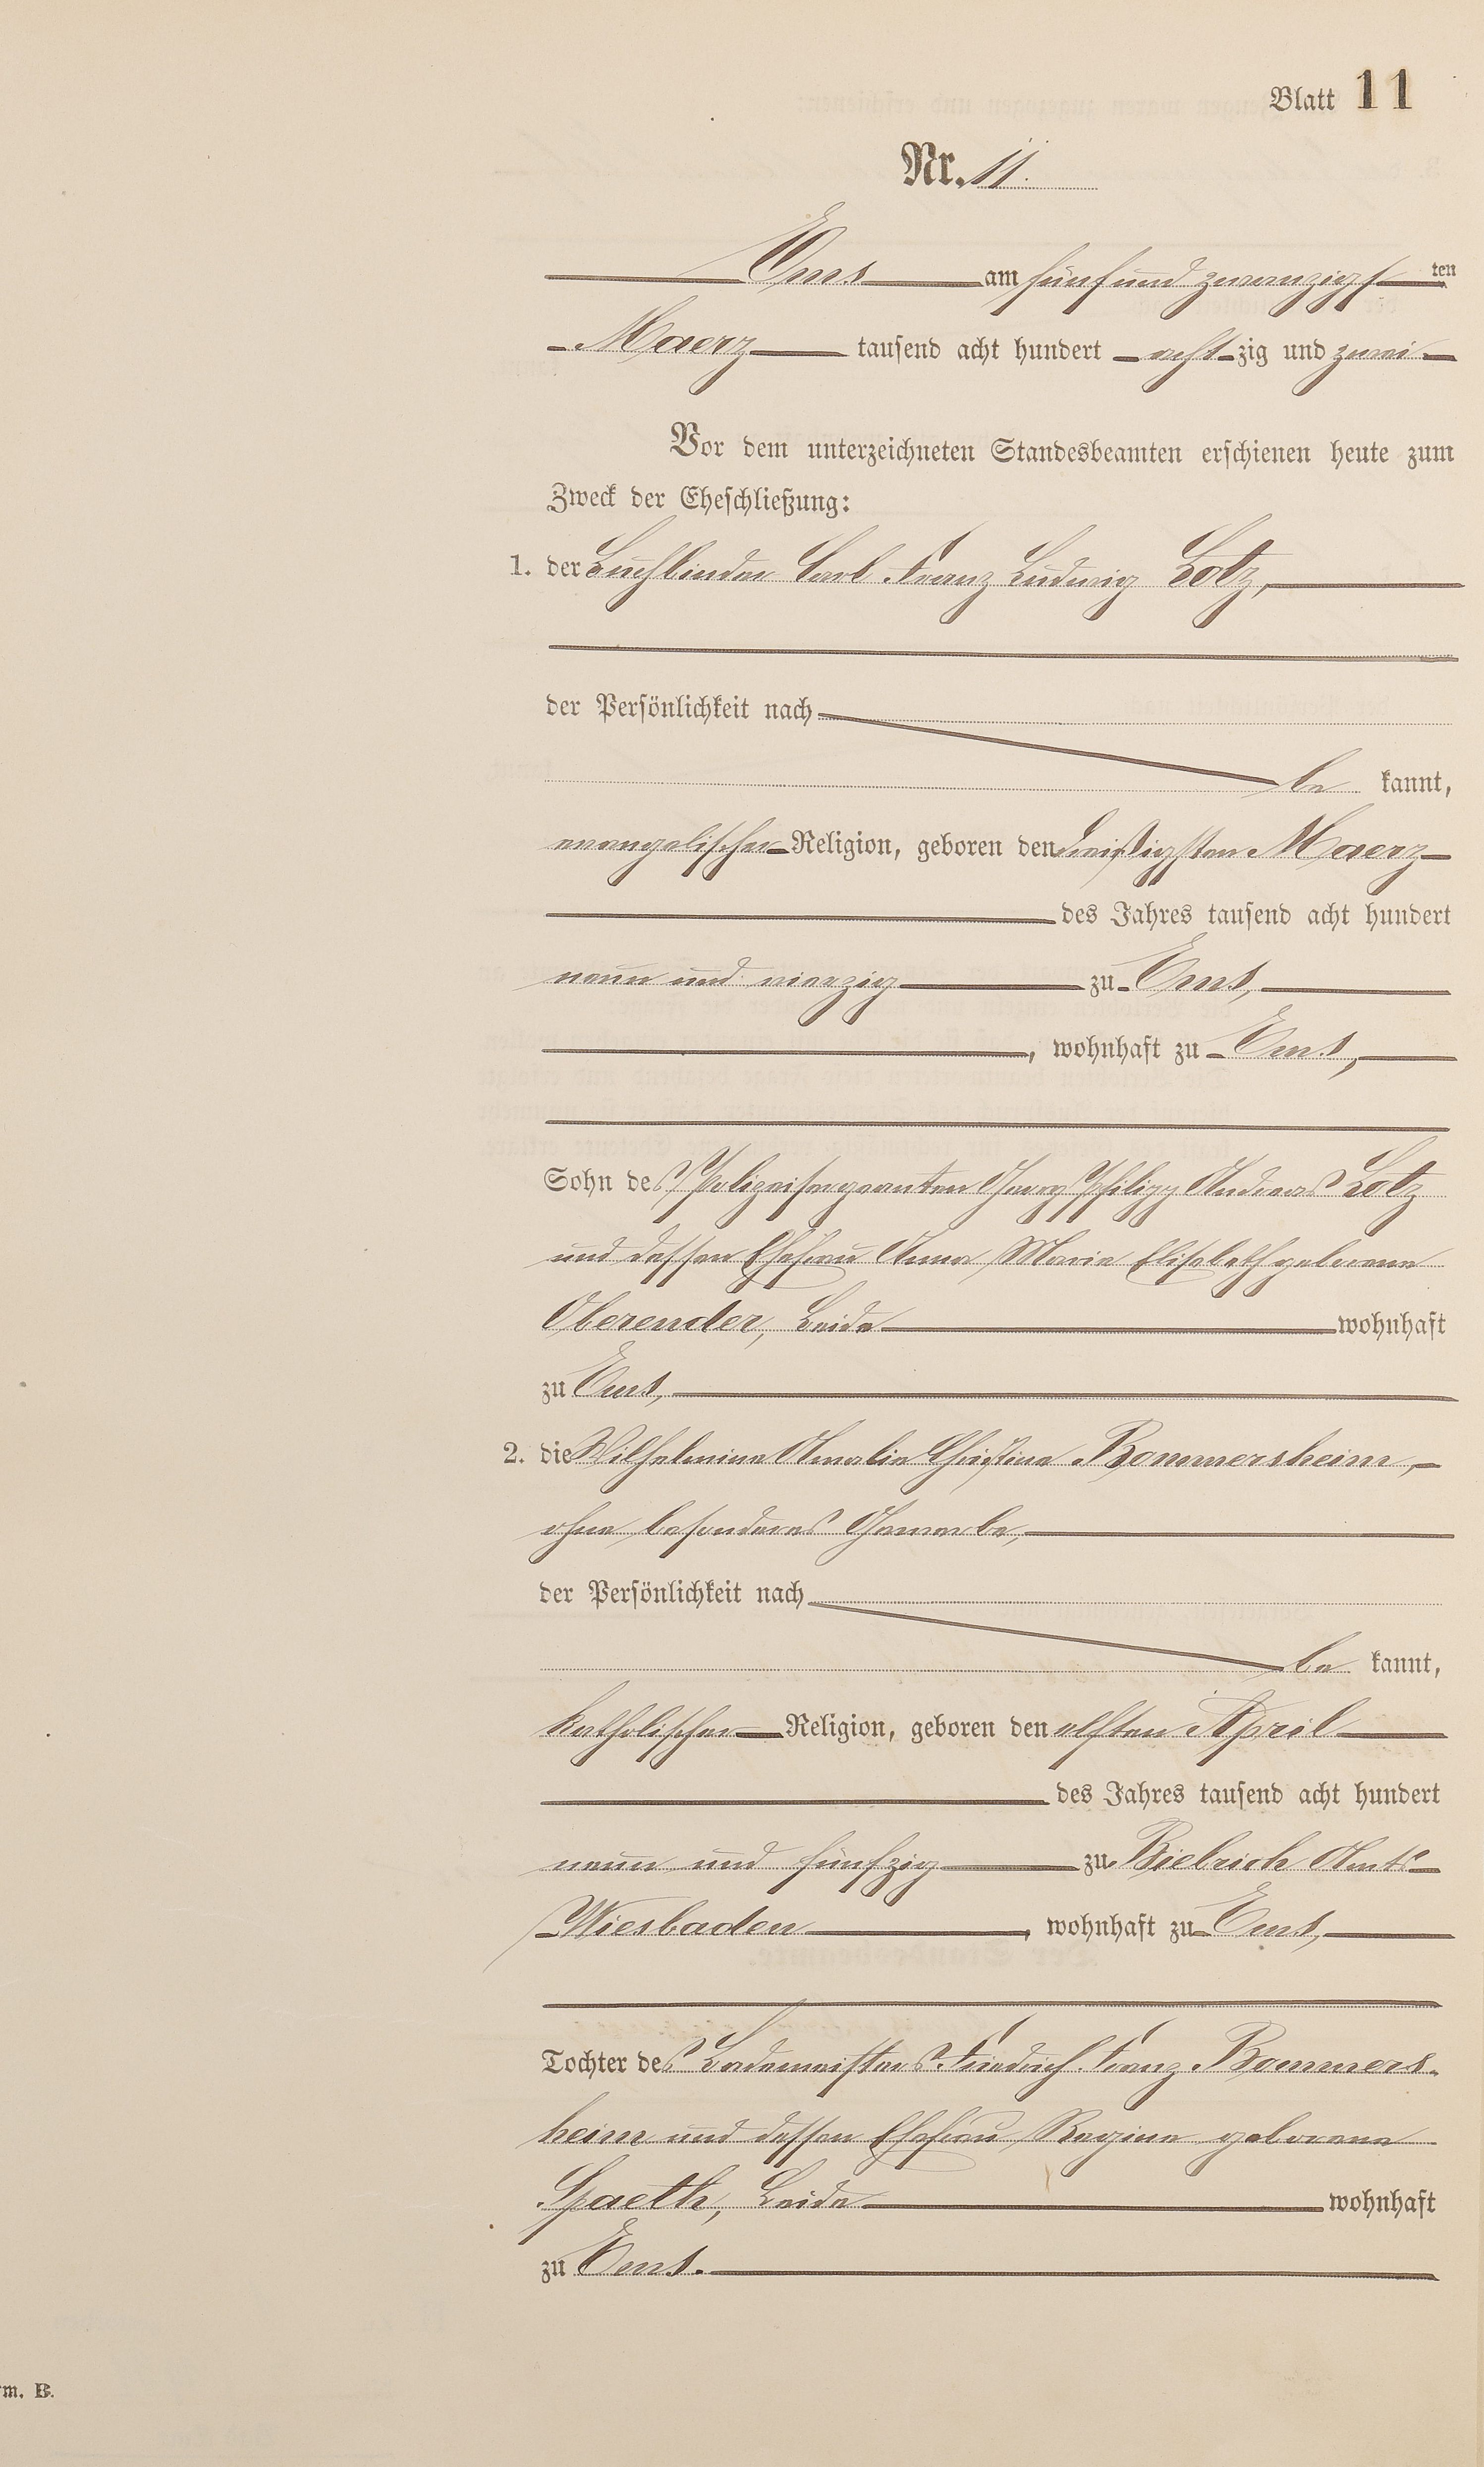 Blatt 11
Nr. 11.
Ems am fünf und zwanzigsten
Maerz tausend acht hundert acht-zig und zwei
Vor dem unterzeichneten Standesbeamten erschienen heute zum
Zweck der Eheschließung:
1. der Buchbinder Carl Franz Ludwig Lotz,
der Persönlichkeit nach
be kannt,
evangelischer Religion, geboren den dreißigsten Maerz
des Jahres tausend acht hundert
neun und vierzig zu Ems,
, wohnhaft zu Ems,
Sohn des Polizeisergeanten Georg Philipp Andreas Lotz
und dessen Ehefrau Anna Maria Elisabeth geborene
Oberender, Beide wohnhaft
zu Ems,
2. die Wilhelmine Amalie Christine Bommersheim,
ohne besonderes Gewerbe,
der Persönlichkeit nach
be kannt,
katholischer Religion, geboren den elften April
des Jahres tausend acht hundert
neun und fünfzig zu Biebrich Amts
Wiesbaden, wohnhaft zu Ems,
Tochter des Lademeisters Friedrich Franz Bommers-
heim und dessen Ehefrau Regina geborene
Spaeth, Beide wohnhaft
zu Ems.
m. B.